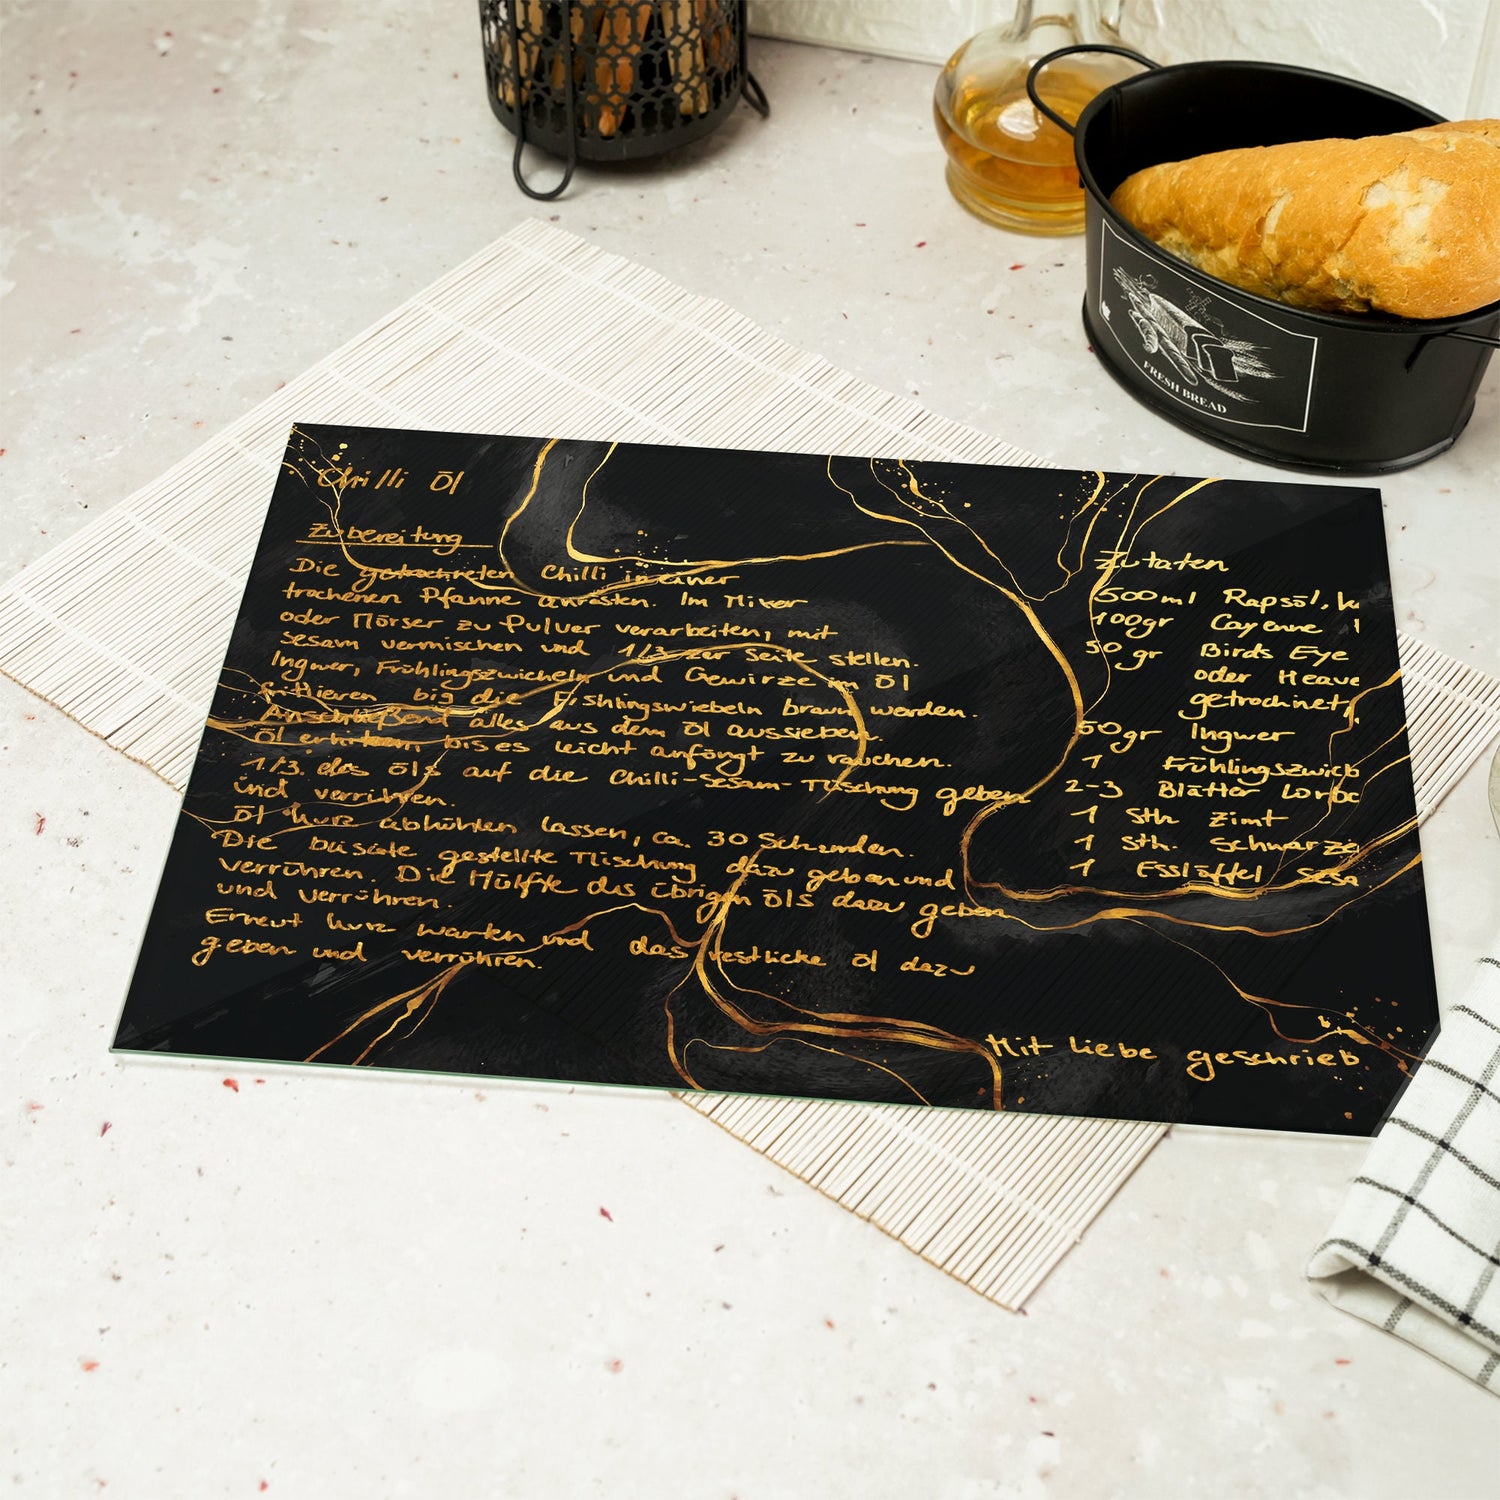 Chilli Öl
Zubereitung
Die getrochneten Chilli in einer
trochenen Pfanne anrösten. Im Mixer
oder Mörser zu Pulver verarbeiten, mit
sesam vermischen und 1/3 zur Seite stellen.
Ingwer, Frühlingszwicheln und Gewürze im Öl
frittieren bis die Frühlingswiebeln braun worden.
Anschließend alles aus dem Öl aussieben.
Öl erhitzen bis es leicht anfängt zu rauchen.
1/3. des Öls auf die Chilli-Sesam-Mischung geben
und verrühren.
Öl kurz abkühlen lassen, ca. 30 Sekunden.
Die beiseite gestellte Mischung dazu geben und
verrühren. Die Hälfte des übrigen Öls dazu geben
und verrühren.
Erneut kurz warten und das restliche Öl dazu
geben und verrühren.
Zutaten
500ml Rapsöl,
100gr Cayenne
50gr Birds Eye
oder Heave
getrochnet,
50gr Ingwer
1 Frühlingszwieb
2-3 Blätter Lorbe
1 Sth Zimt
1 Sth. Schwarze
1 Esslöffel Sesa
Mit liebe geschrieb
FRESH BREAD